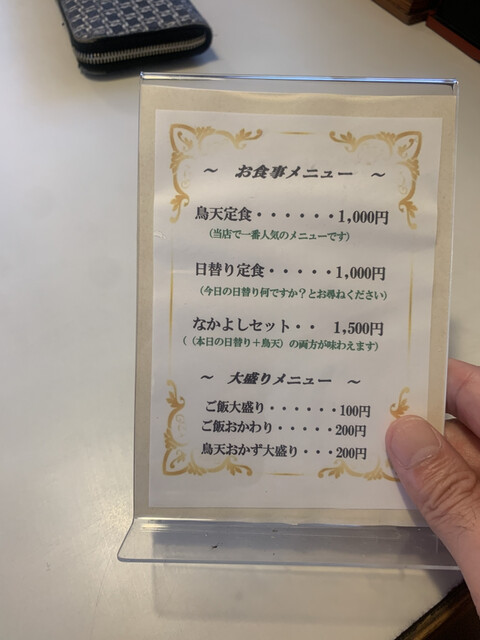 ～ お食事メニュー ～
鳥天定食・・・・・・1,000円
(当店で一番人気のメニューです)
日替り定食・・・・・1,000円
(今日の日替り何ですか？とお尋ねください)
なかよしセット・・ 1,500円
(（本日の日替り＋鳥天）の両方が味わえます)
～ 大盛りメニュー ～
ご飯大盛り・・・・・・100円
ご飯おかわり・・・・・200円
鳥天おかず大盛り・・・200円